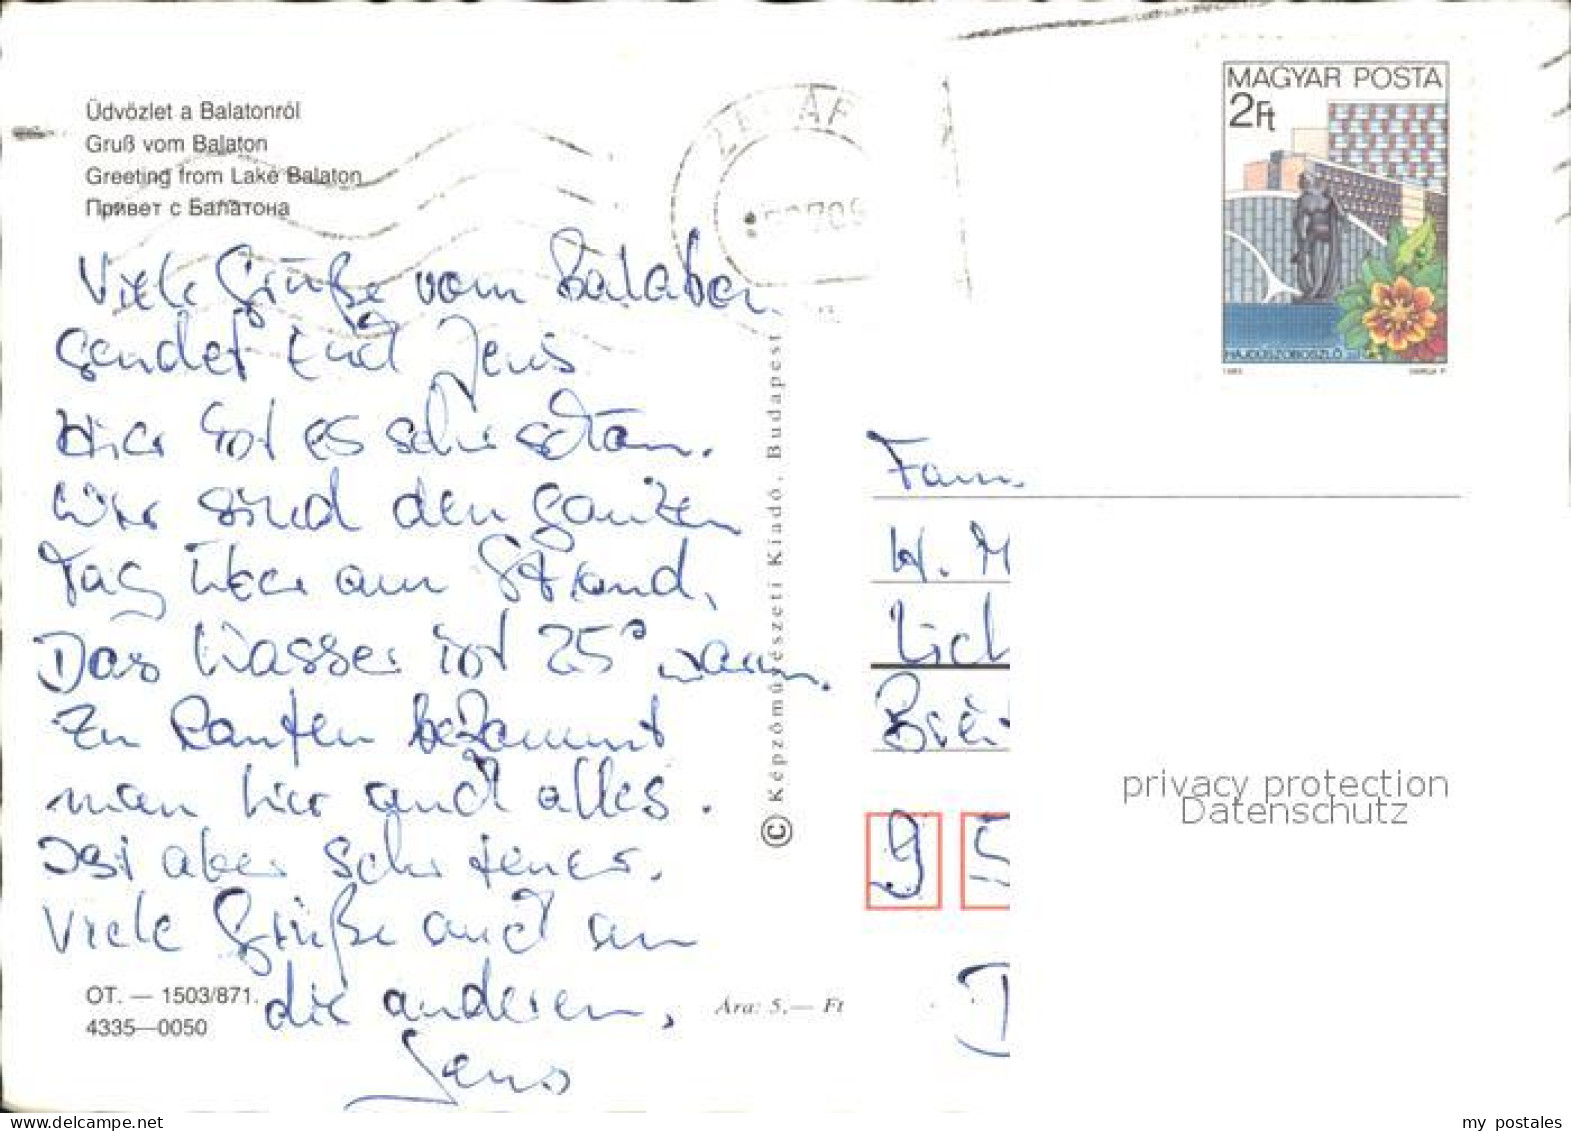 MAGYAR POSTA
2Ft
HAJDÚSZOBOSZLÓ
1983 VARGA P.
Üdvözlet a Balatonról
Gruß vom Balaton
Greeting from Lake Balaton
Привет с Балатона
Viele Grüße vom Balaton
sendet Euch Jens
Hier ist es sehr schön.
Wir sind den ganzen
Tag über am Strand.
Das Wasser ist 25° warm.
Zu kaufen bekommt
man hier auch alles.
Ist aber sehr teuer.
Viele Grüße auch an
die anderen,
Jens
OT. — 1503/871.
4335—0050
Ára: 5,— Ft
© Képzőművészeti Kiadó, Budapest
Fam.
W. M
Lich
9 5
privacy protection
Datenschutz
my postales